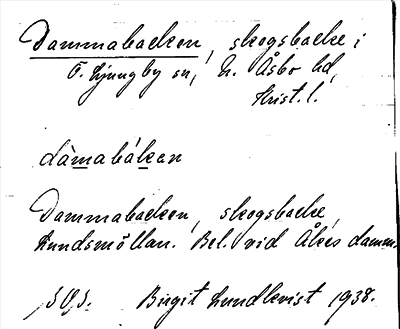 Dammabacken, skogsbacke i
Ö. Ljungby sn, N. Åsbo hd,
Krist. l.
dàmabákan
Dammabacken, skogsbacke,
Lundsmöllan. Bel. vid Åkes damm.
Birgit Lundkvist 1938.